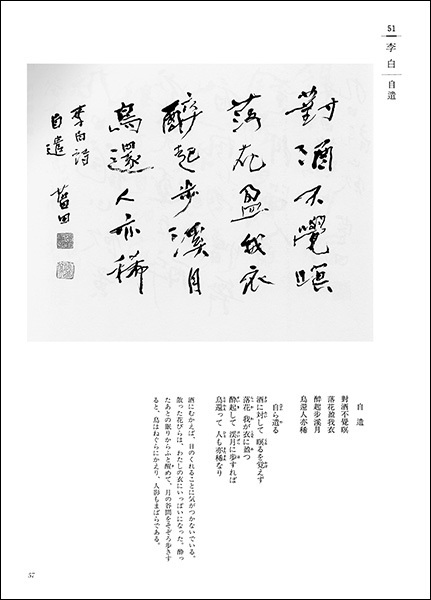 51
李白
自遣
對酒不覺暝
落花盈我衣
醉起步溪月
鳥還人亦稀
李白詩
自遣
自遣
對酒不覺暝
落花盈我衣
醉起步溪月
鳥還人亦稀
自ら遣る
酒に対して 暝るを覚えず
落花 我が衣に盈つ
酔起して 渓月に歩すれば
鳥還って 人も亦稀なり
酒にむかえば、日のくれることに気がつかないでいる。
散った花びらは、わたしの衣にいっぱいになった。酔っ
たあとの眠りからふと醒めて、月の谷間をそぞろ歩きす
ると、鳥はねぐらにかえり、人影もまばらである。
57